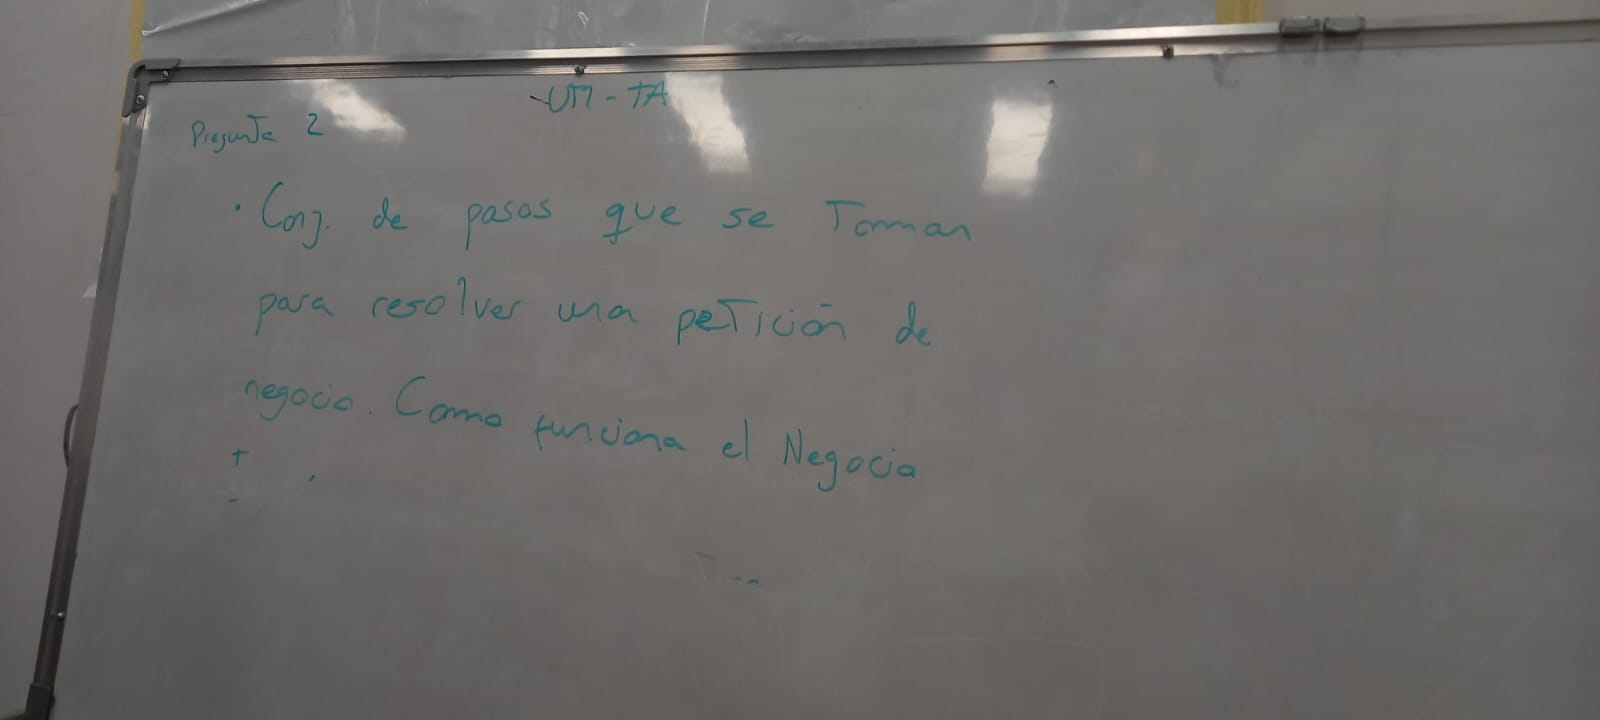 Pregunta 2
• Conj. de pasos que se Toman
para resolver una petición de
negocio. Como funciona el Negocio
+
-